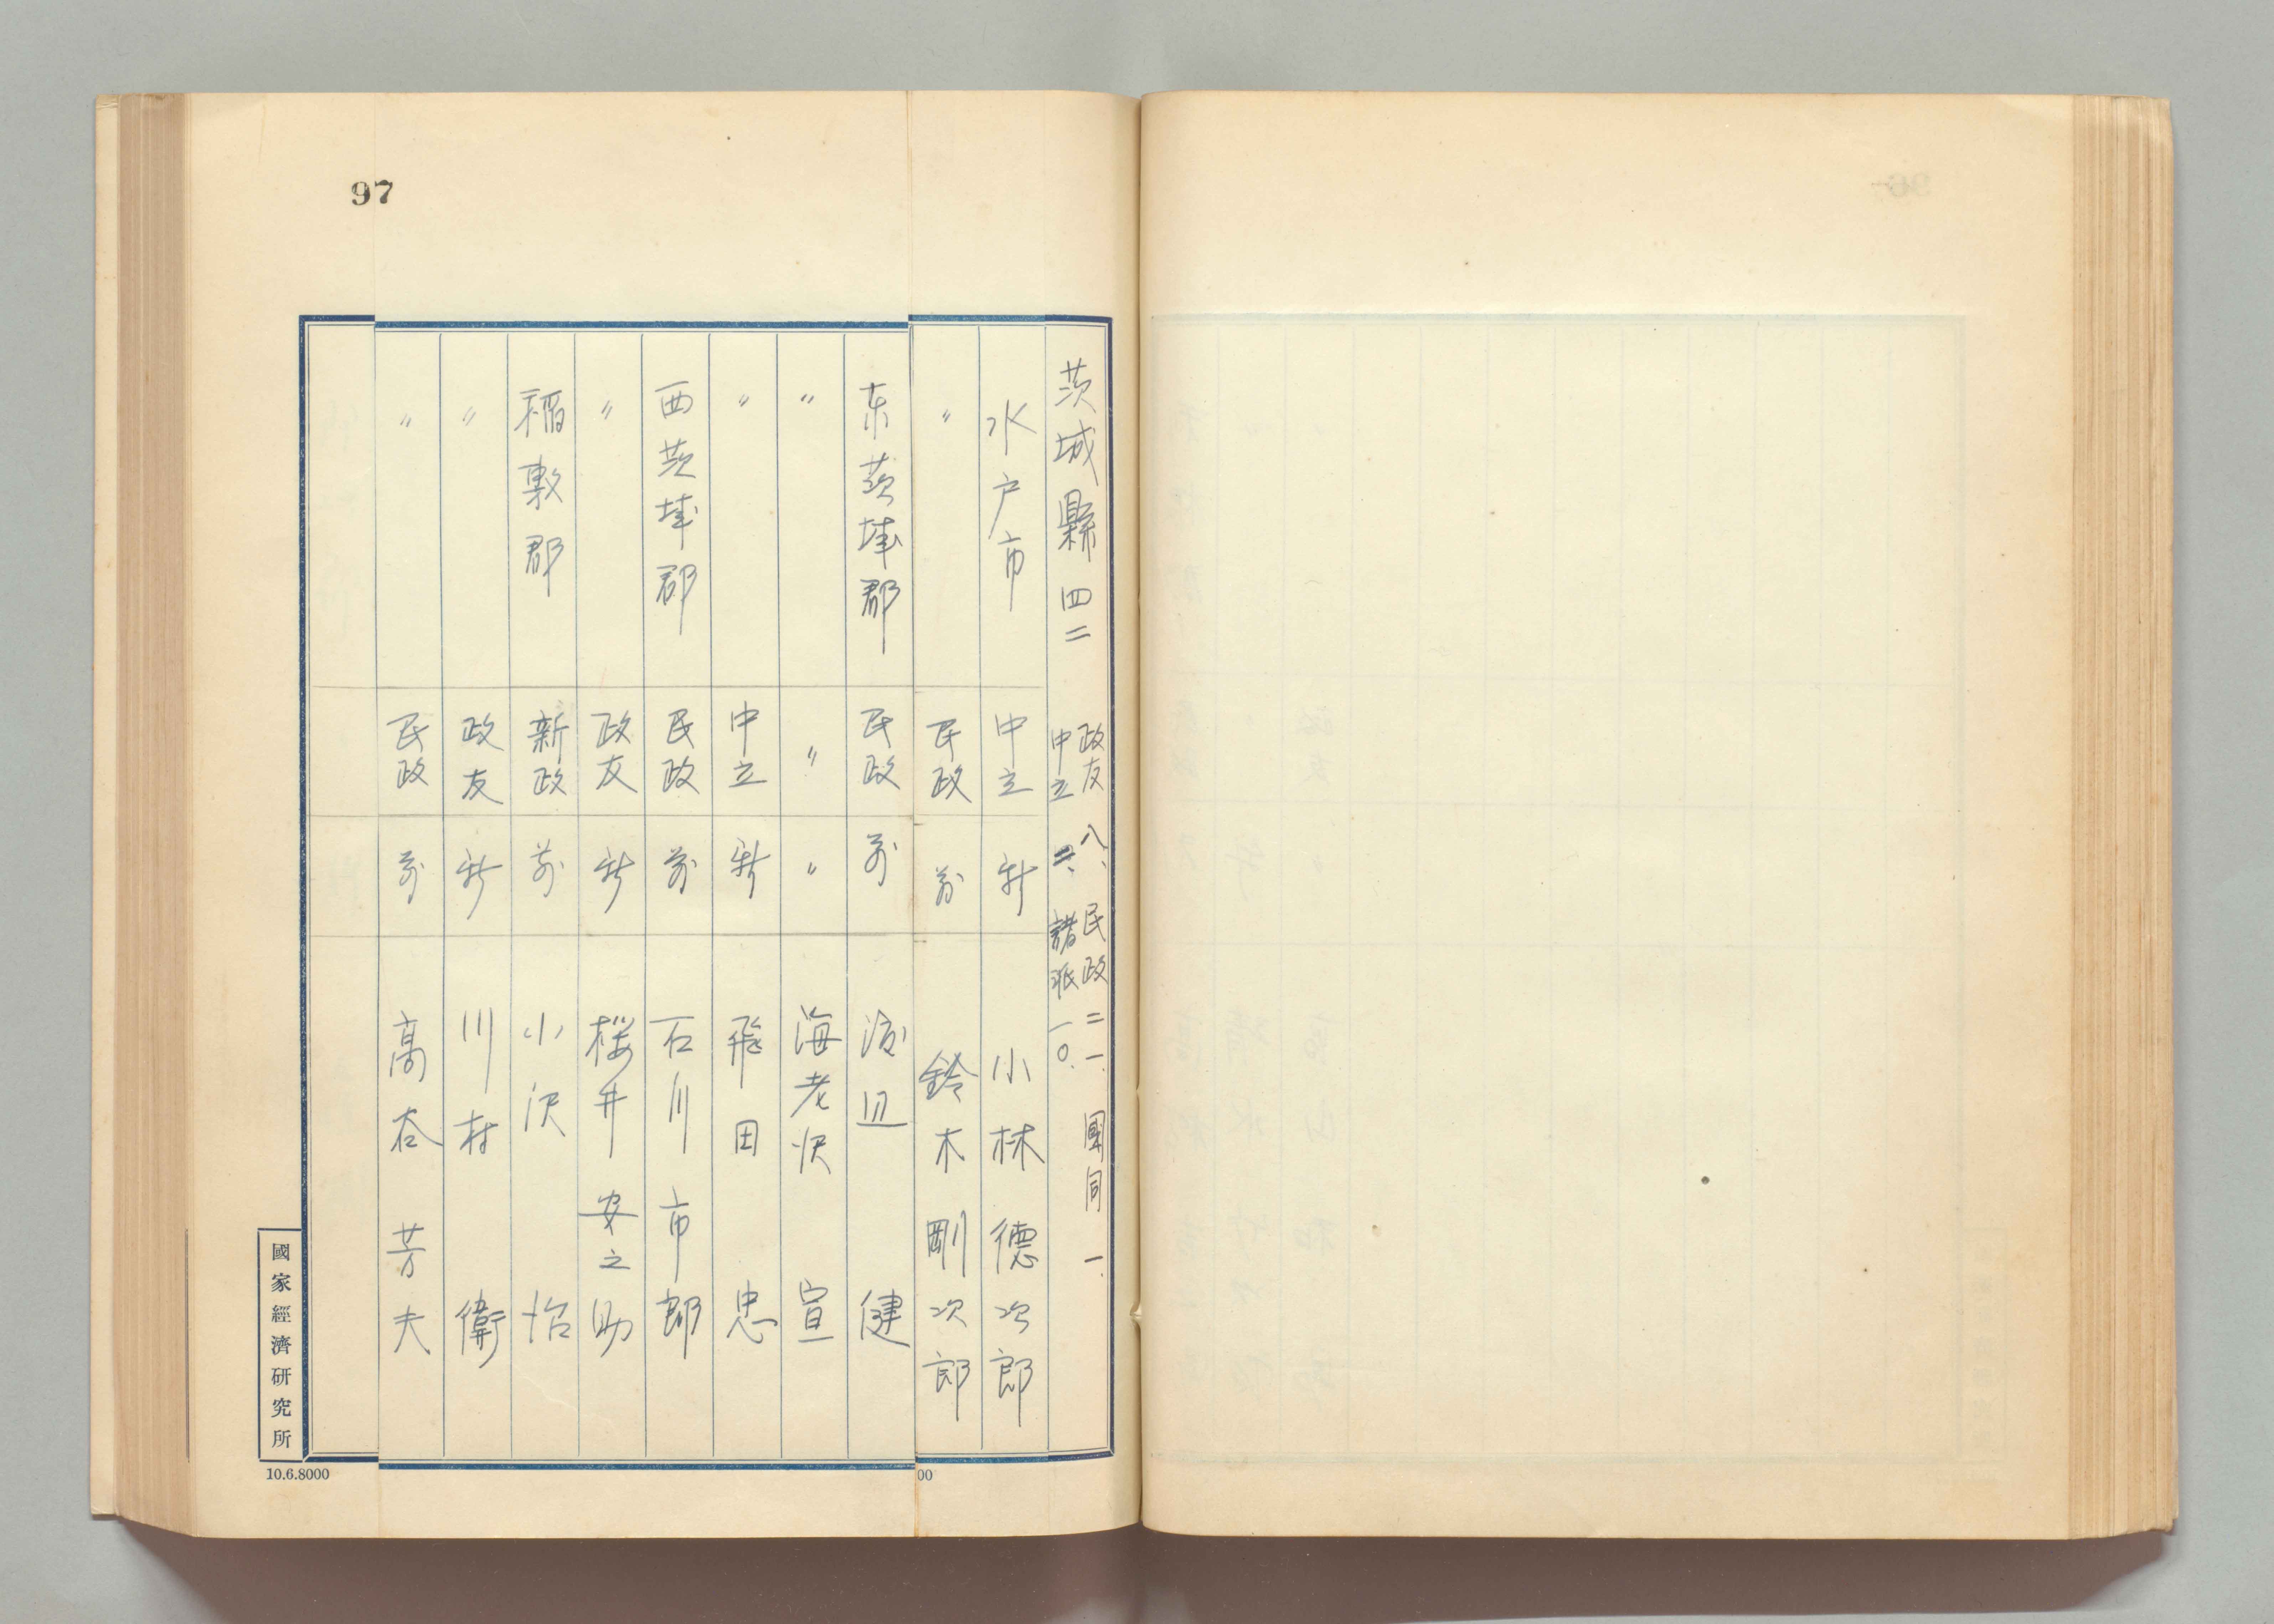 97
茨城縣 四二
政友 八、民政 二一、國同 一、
中立 二、諸派 一〇、
水戸市 中立 新 小林 德次郎
〃 民政 前 鈴木 剛次郎
东茨城郡 民政 前 渡辺 健
〃 〃 〃 海老沢 宣
〃 中立 新 飛田 忠
西茨城郡 民政 前 石川 市郎
〃 政友 新 桜井 安之助
稲敷郡 新政 前 小沢 怡
〃 政友 新 川村 衛
〃 民政 前 髙 芳夫
國家經濟研究所
10.6.8000
00